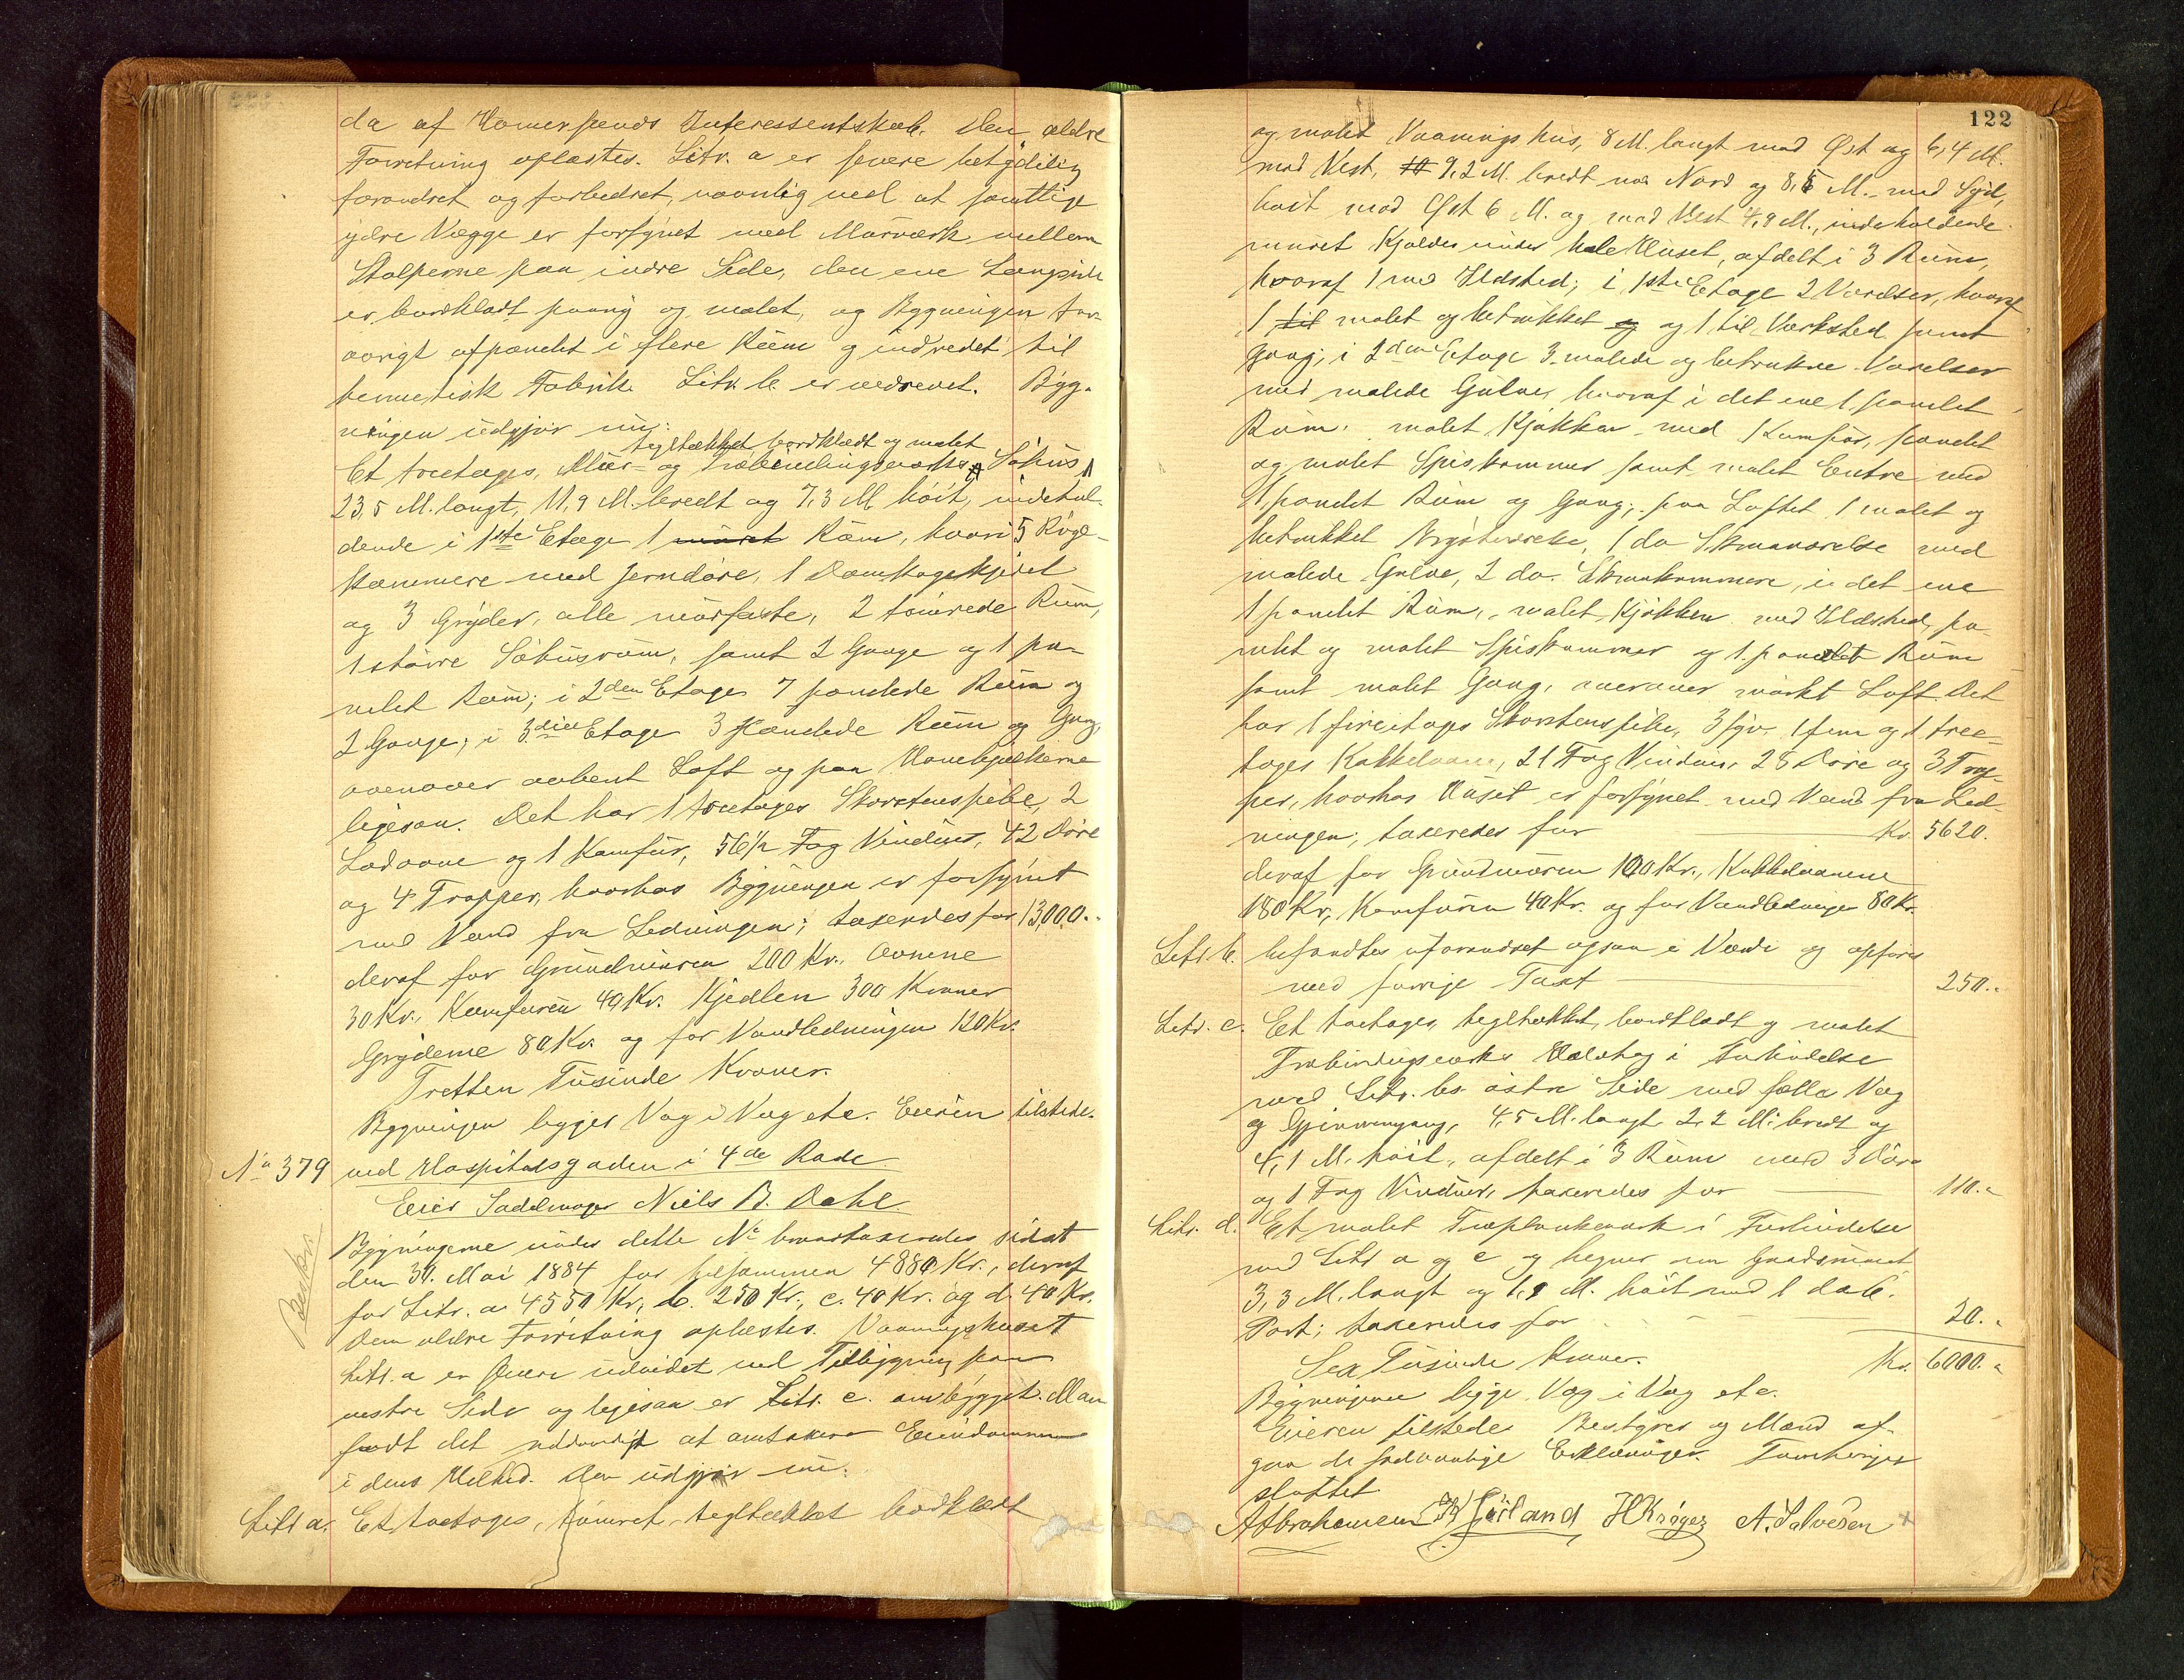 da af Homersands Interessentskab. Den ældre
Forretning oplæstes. Litr. a er senere betydelig
forandret og forbedret, navnlig ved at samtlige
ydre Vægge er forsynet med Murværk mellem
Stolperne paa indre Side, den ene Langside
er bordklædt paany og malet, og Bygningen for-
øvrigt afpanelet i flere Rum og indredet til
hermetisk Fabrik. Litr. b er nedrevet. Byg-
ningen udgjør nu:
tegltækket, bordklædt og malet
Et treetages, Mur- og Træbindingsværks Søhus
23,5 M. langt, 11,9 M. bredt og 7,3 M. høit, indehol-
dende i 1ste Etage 1 muret Rum, hvori 5 Røge-
kammere med Jerndøre, 1 Dampkogekjedel
og 3 Gryder, alle murfaste, 2 tømrede Rum,
1 større Søhusrum, samt 2 Gange og 1 pa-
nelet Rum; i 2den Etage 7 panelede Rum og
2 Gange; i 3die Etage 3 panelede Rum og Gang,
ovenover aabent Loft og paa Hanebjælkerne
ligesaa. Det har 1 treetages Skorstenspibe, 2
Ladovne og 1 Komfur, 56½ Fag Vinduer, 42 Døre
og 4 Trapper, hvorhos Bygningen er forsynet
med Vand fra Ledningen; taxeredes for 13000.-
deraf for Grundmuren 200 Kr., Ovnene
30 Kr., Komfuren 40 Kr. Kjedlen 300 Kroner
Gryderne 80 Kr. og for Vandledningen 120 Kr.
Tretten Tusinde Kroner.
Bygningen ligger Væg i Væg etc. Eieren tilstede.
No 379 ved Hospitalsgaden i 4de Rode
Eier Sadelmager Niels B. Dahl.
Bygningerne under dette No branntaxeredes sidst
den 30. Mai 1884 for tilsammen 4880 Kr., deraf
for Litr. a. 4550 Kr., b. 250 Kr., c. 40 Kr. og d. 40 Kr.
Den ældre Forretning oplæstes. Vaaningshuset
Litr. a er senere udvidet ved Tilbygning paa
vestre Side og ligesaa er Litr. c. ombygget. Man
fandt det nødvendigt at omtaxere Eiendommen
i dens Helhed. Den udgjør nu:
Litr a. Et toetages, tømret, tegltækket bordklædt
122
og malet Vaaningshus, 8 M. langt mod Øst og 6,4 M.
mod Vest, 9,2 M. bredt mod Nord og 8,5 M. mod Syd,
høit mod Øst 6 M. og mod Vest 4,9 M., indeholdende
muret Kjælder under hele Huset, afdelt i 3 Rum,
hvoraf 1 med Ildsted; i 1ste Etage 2 Værelser, hvoraf
1 til malet og betrukket og og 1 til Værksted samt
Gang; i 2den Etage 3 malede og betrukne Værelser
med malede Gulve, hvoraf i det ene 1 panelet
Rum, malet Kjøkken med Komfur, panelet
og malet Spiskammer samt malet Entre med
1 panelet Rum og Gang; paa Loftet 1 malet og
betrukket Kvistværelse, 1 do Skraaværelse med
malede Gulve, 2 do. Skraakammere, i det ene
1 panelet Rum, malet Kjøkken med Ildsted, pa-
nelet og malet Spiskammer og 1 panelet Rum
samt malet Gang, ovenover mørkt Loft. Det
har 1 fireetages Skorstenspibe, 3 fyr- 1 fem og 1 tree-
tages Kakkelovne, 21 Fag Vinduer, 28 Døre og 3 Trap-
per, hvorhos Huset er forsynet med Vand fra Led-
ningen; taxeredes for Kr. 5620.
deraf for Grundmuren 100 Kr., Kakkelovnene
180 Kr., Komfuren 40 Kr. og for Vandledningen 80 Kr.
Litr. b. befandtes uforandret ogsaa i Værdi og opføres
med forrige Taxt 250.-
Litr. c. Et toetages, tegltækket, bordklædt og malet
Træbindingsværks i Forbindelse
med Litr. bs østre Side med fælles Væg
og Gjennemgang, 4,5 M. langt 2,2 M. bredt og
4,1 M. høit, afdelt i 3 Rum med 3 Døre
og 1 Fag Vinduer, taxeredes for 110.-
Litr. d. Et malet Træplankeværk i Forbindelse
med Litr a og c og hegner om Gaardsrummet
3,3 M. langt og 1,9 M. høit med 1 dob.
Port; taxeredes for 20.-
Sex Tusinde Kroner. Kr. 6000.-
Bygningerne ligge Væg i Væg etc.
Eieren tilstede. Bestyrer og Mænd af-
gav de sædvanlige Erklæringer. Forretningen
sluttet
A Abrahamsen Gjøsland HKrøger A. Salvesen